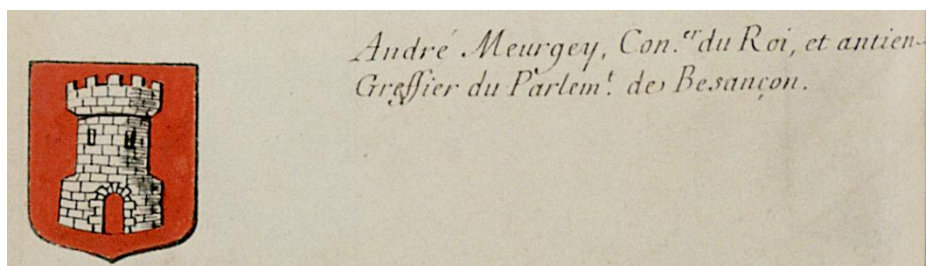 André Meurgey, Con.er du Roi, et antien-
Greffier du Parlem.t de Besançon.